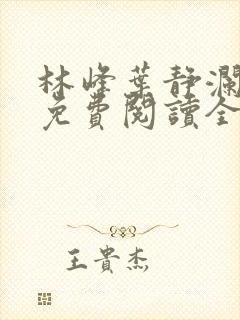 林峰葉静瀾
免費閱讀全
王貴杰